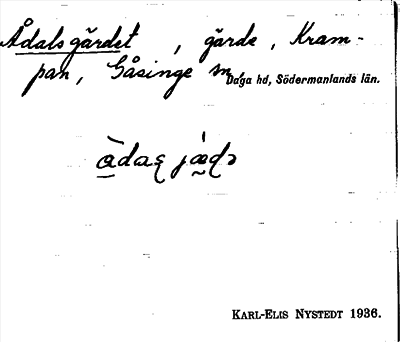 Ådalsgärdet , gärde, Kram-
pan, Gåsinge sn, Daga hd, Södermanlands län.
KARL-ELIS NYSTEDT 1936.